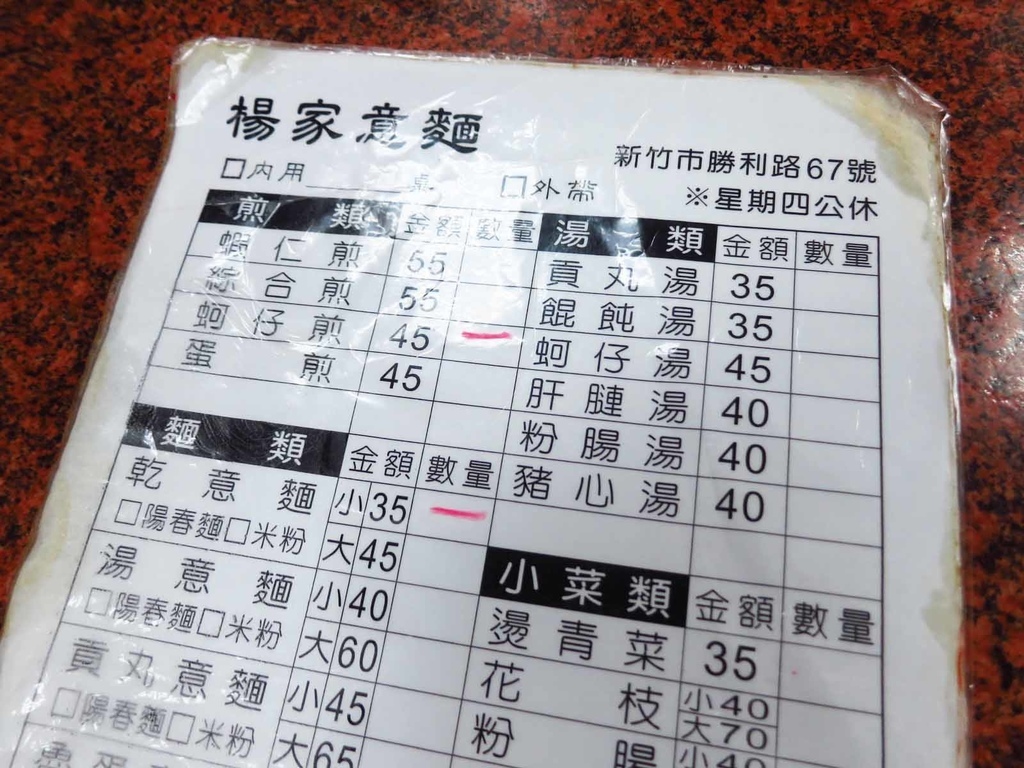 楊家意麵
新竹市勝利路67號
□內用______桌 □外帶
※星期四公休
煎類 金額 數量
蝦仁煎 55
綜合煎 55
蚵仔煎 45 一
蛋煎 45
麵類 金額 數量
乾意麵 小35 一
□陽春麵□米粉 大45
湯意麵 小40
□陽春麵□米粉 大60
貢丸意麵 小45
□陽春麵□米粉 大65
湯 類 金額 數量
貢丸湯 35
餛飩湯 35
蚵仔湯 45
肝腱湯 40
粉腸湯 40
豬心湯 40
小菜類 金額 數量
燙青菜 35
花枝 小40
大70
粉腸 小40